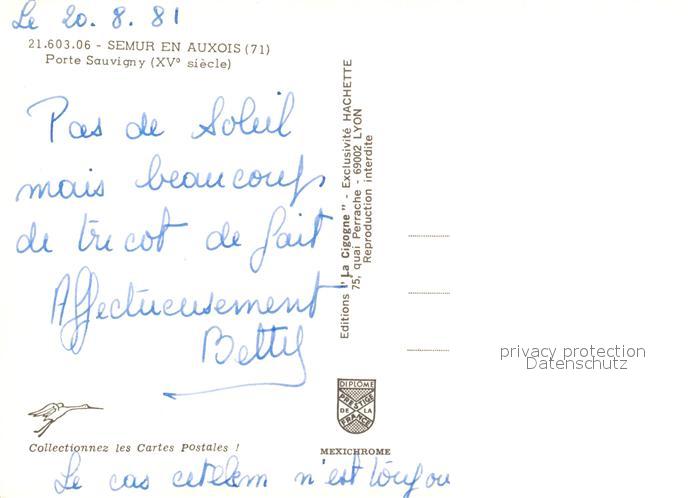 Le 20. 8. 81
21.603.06 - SEMUR EN AUXOIS (71)
Porte Sauvigny (XVº siècle)
Pas de Soleil
mais beaucoup
de tricot de fait
Affectueusement
Betty
Editions "La Cigogne" - Exclusivité HACHETTE
75, quai Perrache - 69002 LYON
Reproduction interdite
privacy protection
Datenschutz
DIPLOME
PRESTIGE
DE LA
FRANCE
Collectionnez les Cartes Postales !
MEXICHROME
Le cas n'est